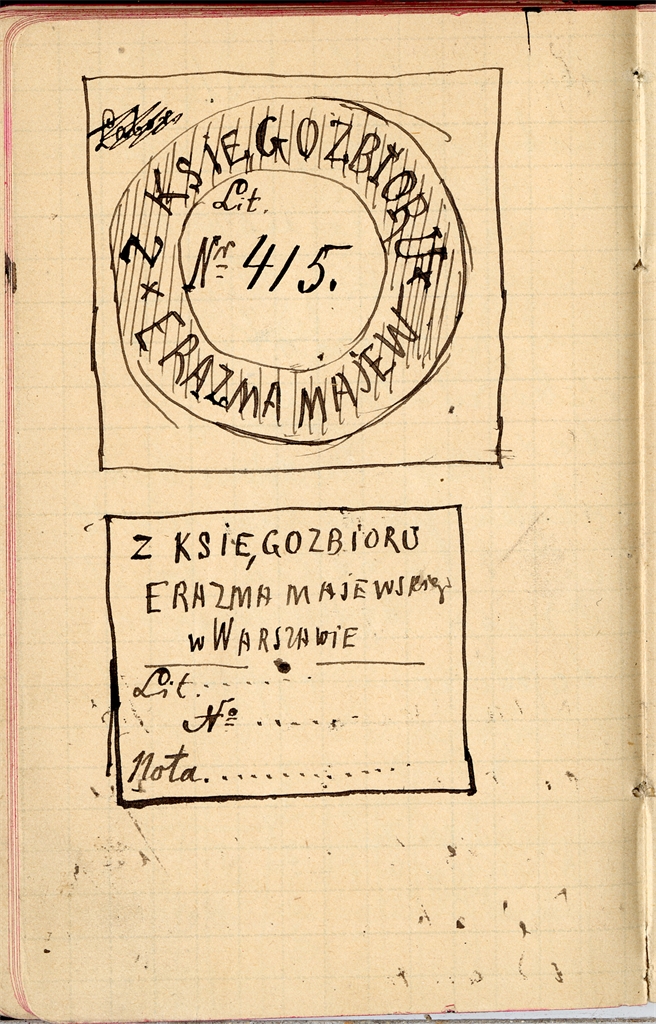 Z KSIĘGOZBIORU
Lit.
Nr 415.
ERAZMA MAJEW
Z KSIĘGOZBIORU
ERAZMA MAJEWSKiego
w WARSZAWIE
Lit. . . . . . . .
No . . . . . . .
Nota. . . . . . . . . . . . .